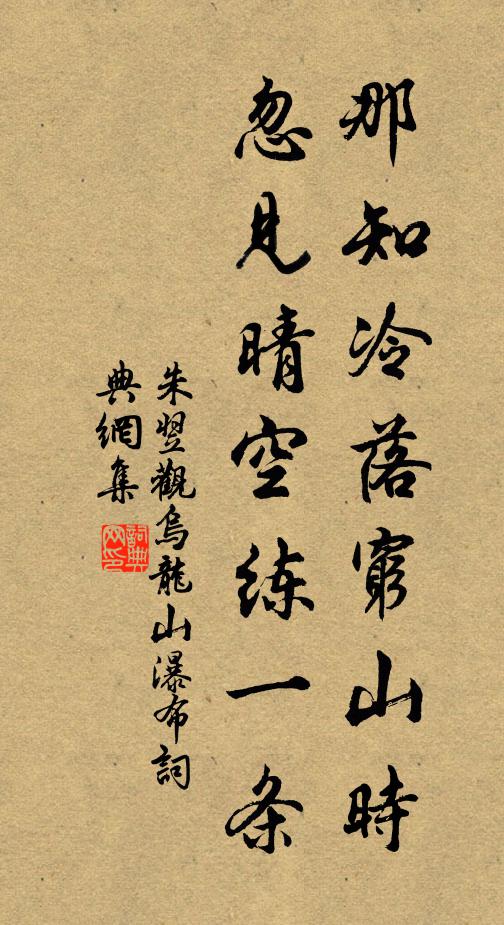 那知冷落窮山時
忽見晴空練一条
朱翌觀烏龍山瀑布詞
典網集
詞典
网印